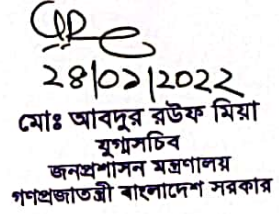 28/02/2022
মোঃ আবদুর রউফ মিয়া
যুগ্মসচিব
জনপ্রশাসন মন্ত্রণালয়
গণপ্রজাতন্ত্রী বাংলাদেশ সরকার